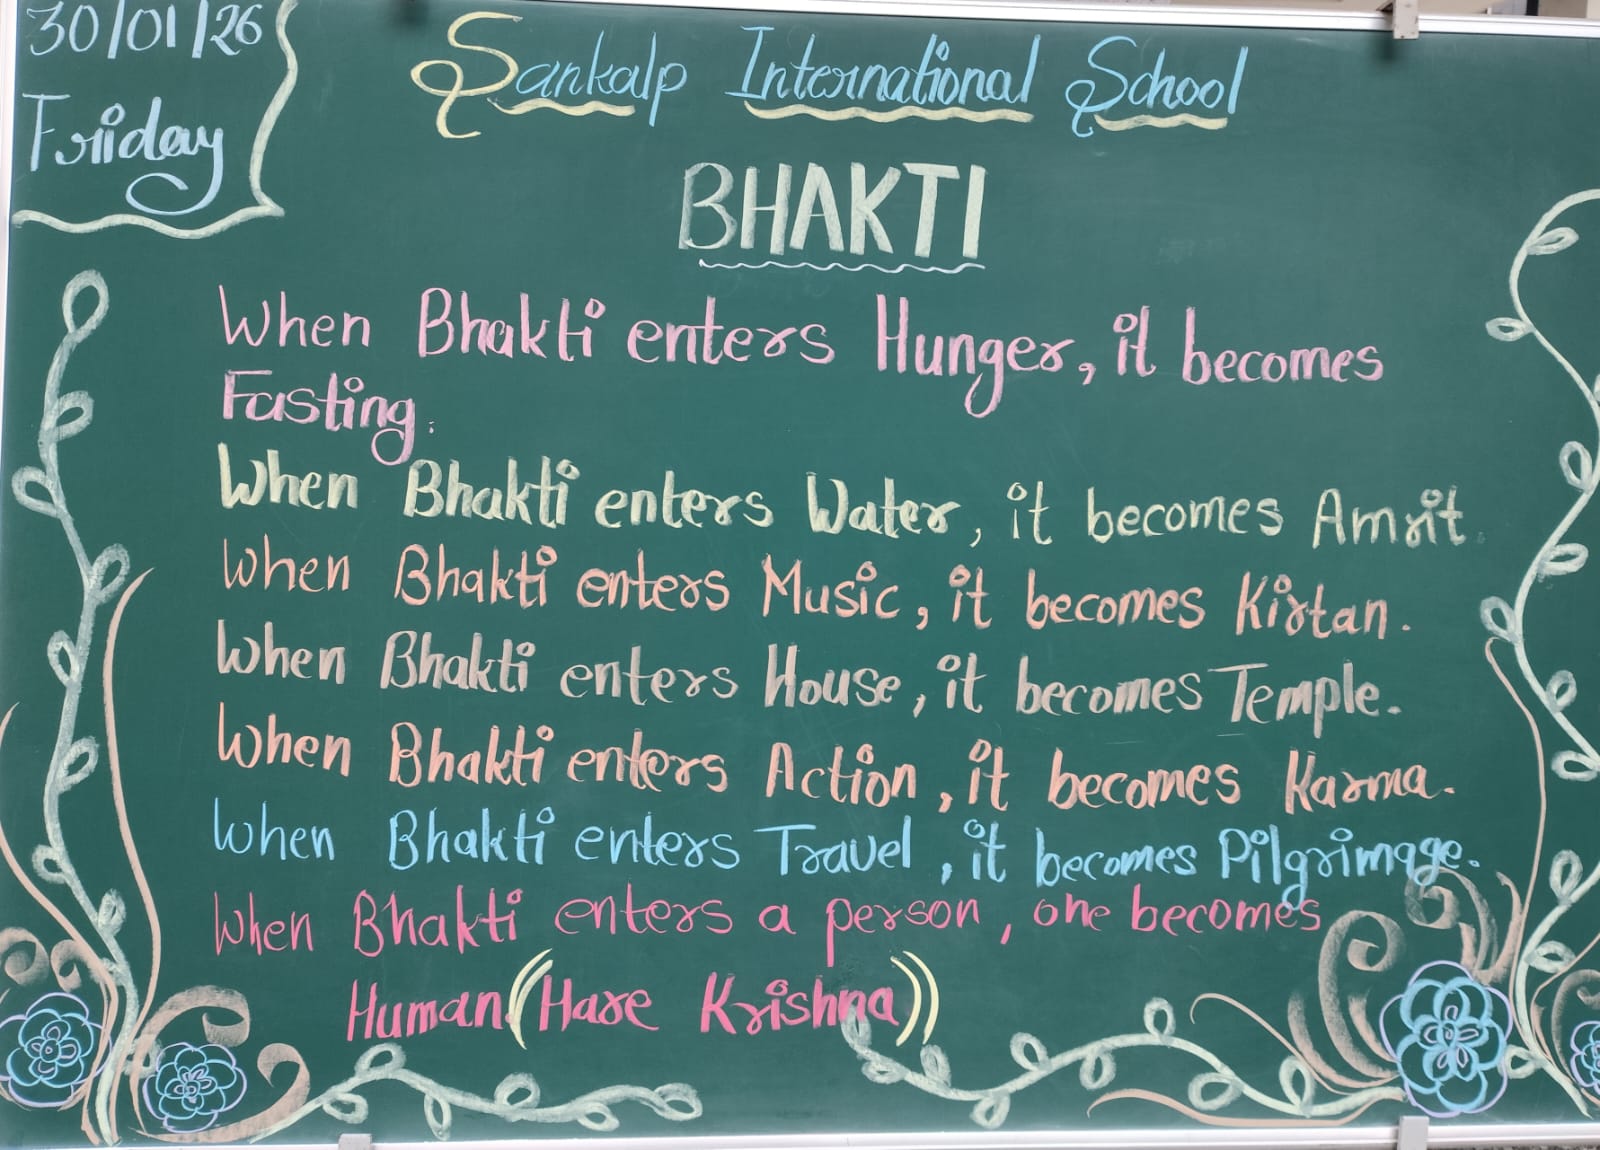 30/01/26
Friday
Sankalp International School
BHAKTI
When Bhakti enters Hunger, it becomes
Fasting.
When Bhakti enters Water, it becomes Amrit.
When Bhakti enters Music, it becomes Kirtan.
When Bhakti enters House, it becomes Temple.
When Bhakti enters Action, it becomes Karma.
When Bhakti enters Travel, it becomes Pilgrimage.
When Bhakti enters a person, one becomes
Human. (Hare Krishna)